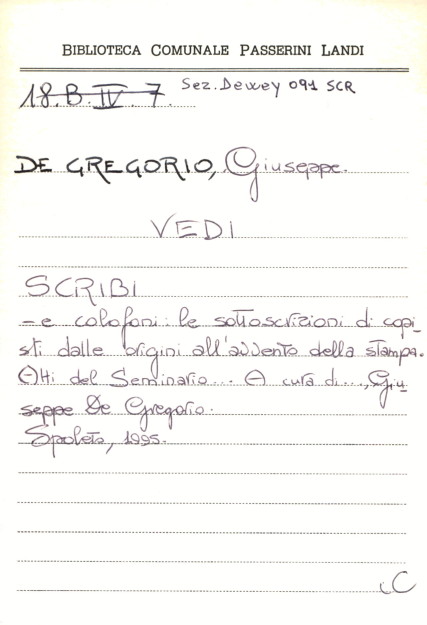 BIBLIOTECA COMUNALE PASSERINI LANDI
18.B.IV.7. Sez. Dewey 091 SCR
DE GREGORIO, Giuseppe.
VEDI
SCRIBI
– e colofoni: le sottoscrizioni di copi-
sti dalle origini all'avvento della stampa.
Atti del Seminario... A cura di..., Giu-
seppe De Gregorio.
Spoleto, 1995.